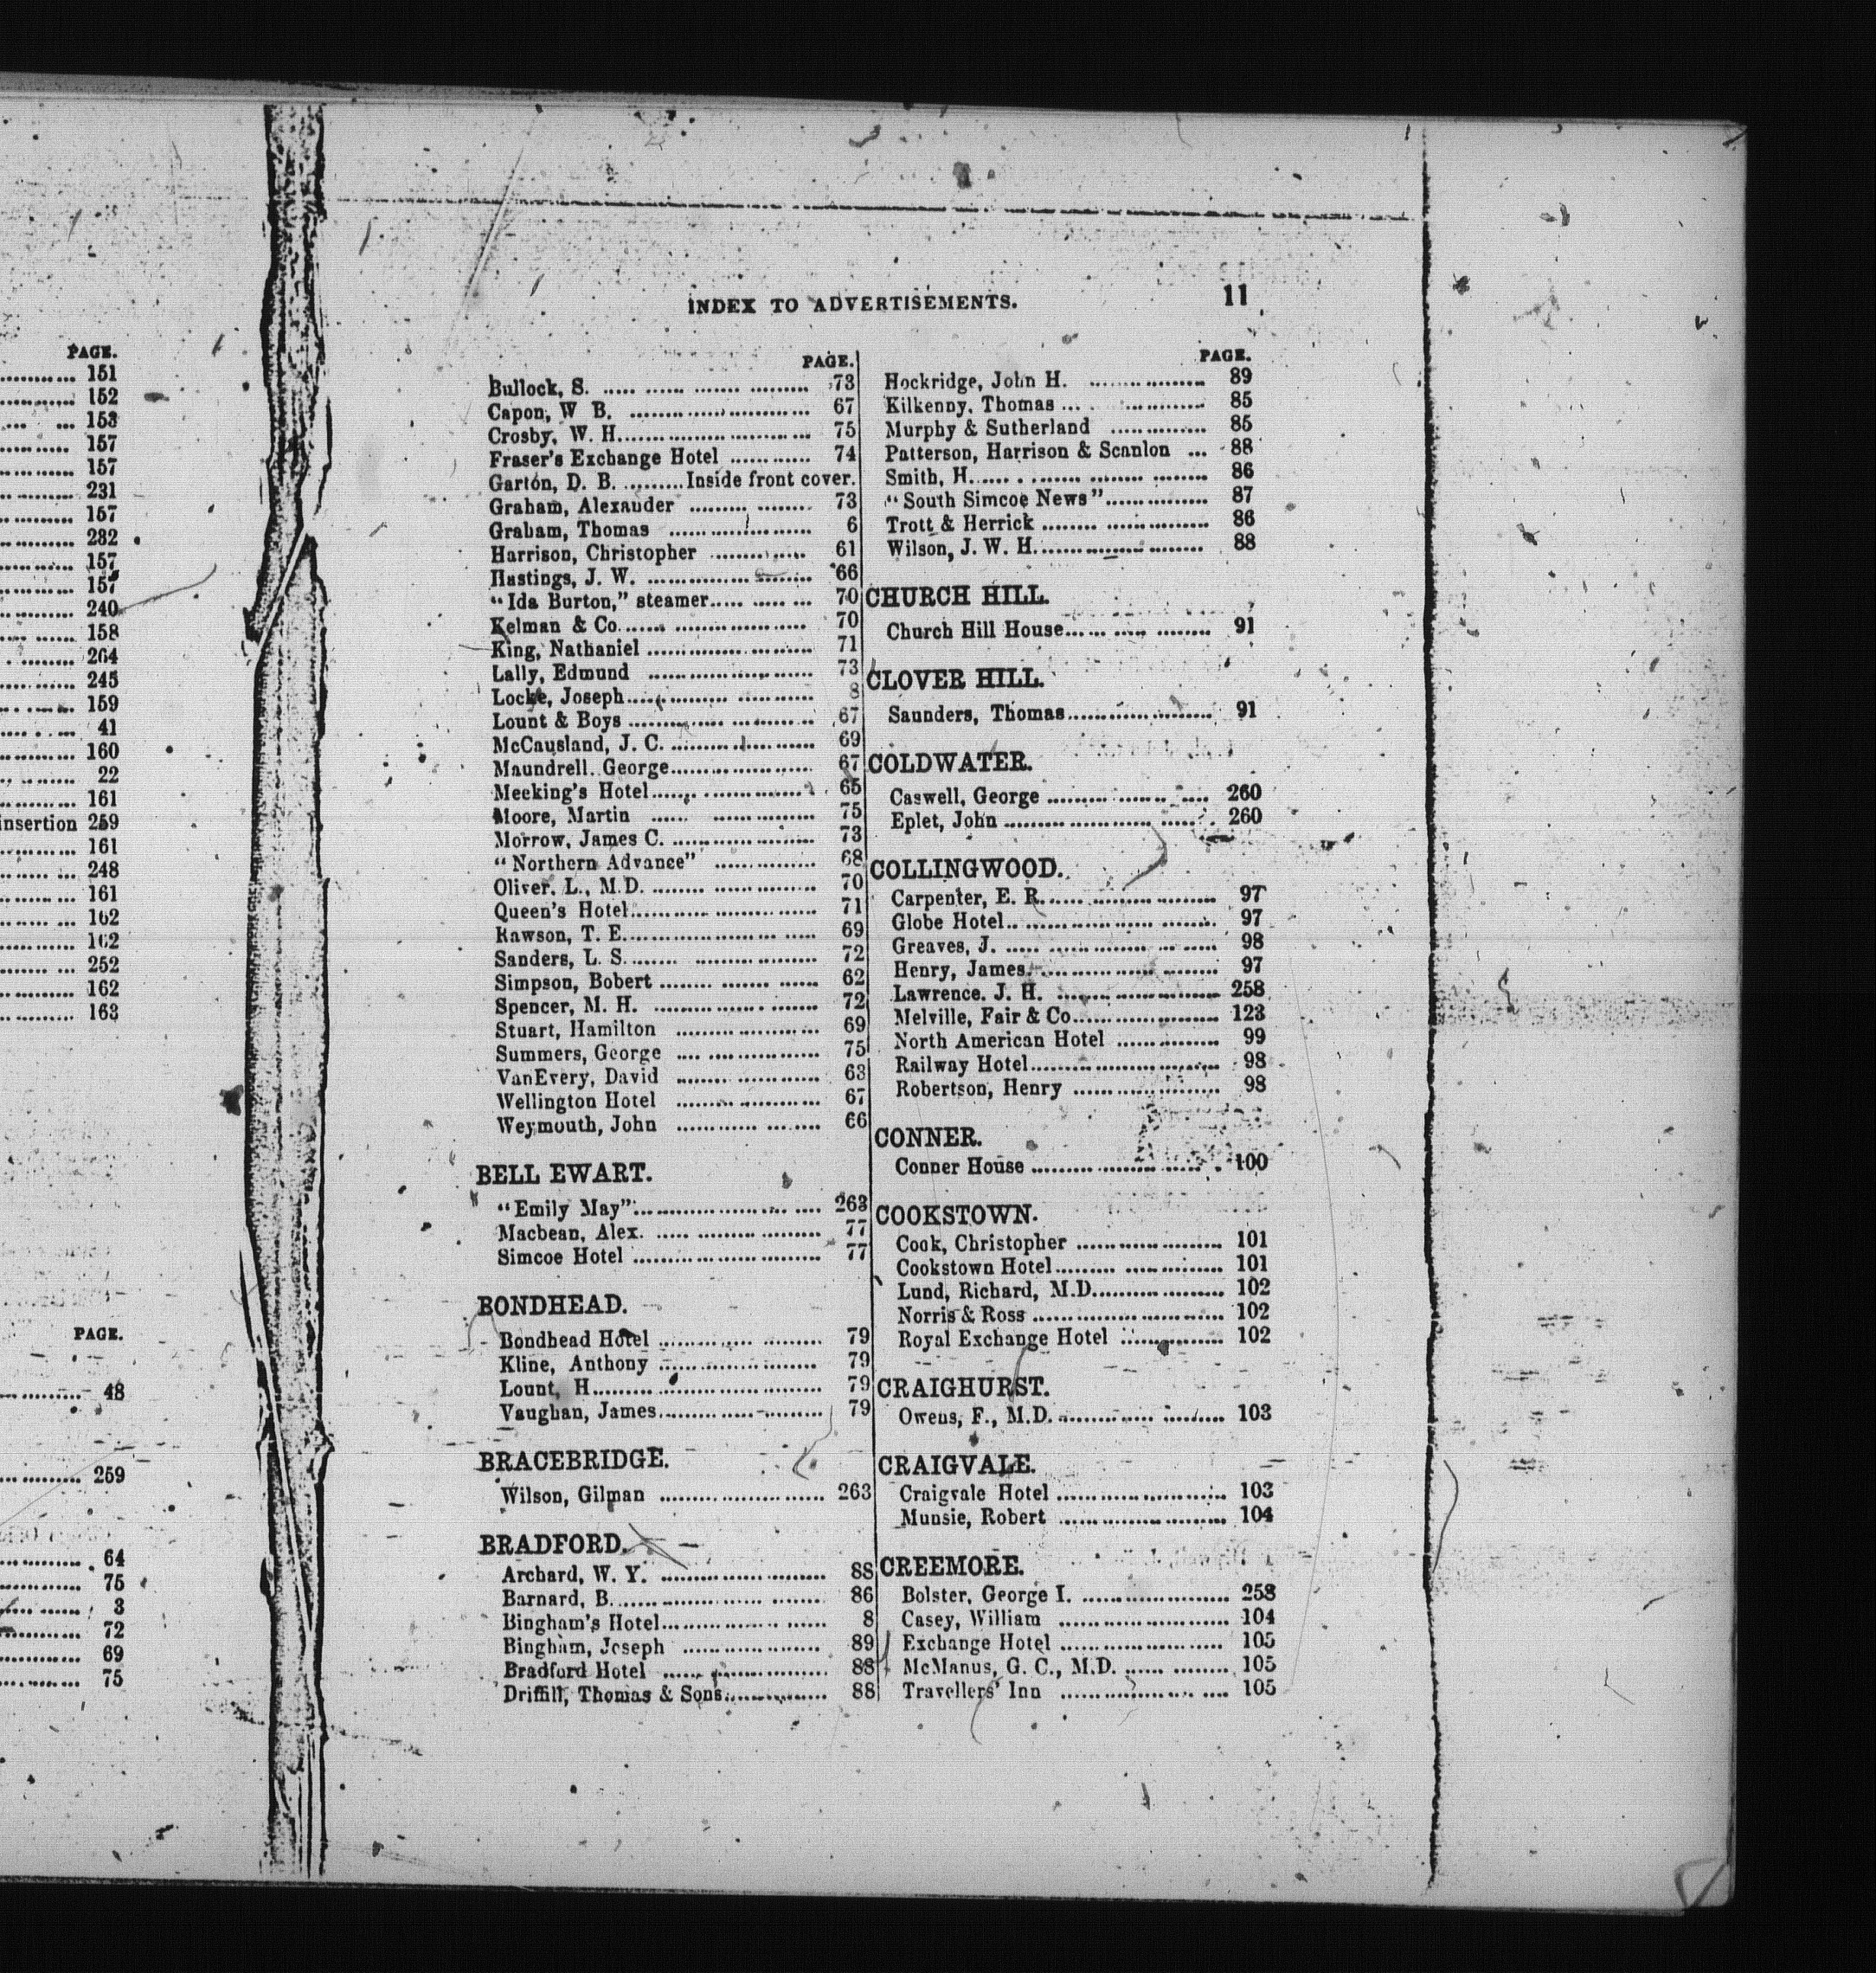 PAGE.
......... 151
......... 152
... ... 153
......... 157
......... 157
......... 231
......... 157
......... 282
......... 157
......... 157
......... 240
......... 158
. ........ 264
......... 245
......... 159
......... 41
......... 160
......... 22
......... 161
insertion 259
......... 161
......... 248
......... 161
......... 162
......... 162
......... 252
......... 162
......... 163
PAGE.
......... 48
......... 259
......... 64
......... 75
......... 3
......... 72
......... 69
......... 75
INDEX TO ADVERTISEMENTS. 11
PAGE.
Bullock, S. ..... ...... ....... ......... 73
Capon, W B. ......................... 67
Crosby, W. H......................... 75
Fraser's Exchange Hotel ........... 74
Garton, D. B. .........Inside front cover.
Graham, Alexander ......... ........ 73
Graham, Thomas ..................... 6
Harrison, Christopher .............. 61
Hastings, J. W. ....................... 66
"Ida Burton," steamer..... ...... ... 70
Kelman & Co........................... 70
King, Nathaniel ...................... 71
Lally, Edmund ....................... 73
Locke, Joseph......................... 8
Lount & Boys ......................... 67
McCausland, J. C. ................... 69
Maundrell. George................... 67
Meeking's Hotel...................... 65
Moore, Martin ...... .............. 75
Morrow, James C. ................... 73
"Northern Advance" .............. 68
Oliver. L., M.D. ........ .............. 70
Queen's Hotel......................... 71
Rawson, T. E.......................... 69
Sanders, L. S......................... 72
Simpson, Bobert ........ ....... ...... 62
Spencer, M. H. ...................... 72
Stuart, Hamilton .................... 69
Summers, George .... ............... 75
VanEvery, David .................... 63
Wellington Hotel .................... 67
Weymouth, John .................... 66
BELL EWART.
"Emily May"......................... 263
Macbean, Alex. ...................... 77
Simcoe Hotel ......................... 77
BONDHEAD.
Bondhead Hotel ............. ......... 79
Kline, Anthony ...................... 79
Lount, H............................... 79
Vaughan, James...................... 79
BRACEBRIDGE.
Wilson, Gilman ...................... 263
BRADFORD.
Archard, W. Y. ...................... 88
Barnard, B............................. 86
Bingham's Hotel..................... 8
Bingham, Joseph .................... 89
Bradford Hotel ...................... 88
Driffill, Thomas & Sons............. 88
PAGE.
Hockridge, John H. ................ 89
Kilkenny. Thomas ... . ........... 85
Murphy & Sutherland ............. 85
Patterson, Harrison & Scanlon ... 88
Smith, H...... . ....... ........ ........ 86
"South Simcoe News".............. 87
Trott & Herrick ........ .............. 86
Wilson, J. W. H...................... 88
CHURCH HILL.
Church Hill House...... ..... ........ 91
CLOVER HILL.
Saunders, Thomas................... 91
COLDWATER.
Caswell, George ......... ....... .... 260
Eplet, John ........................... 260
COLLINGWOOD.
Carpenter, E. R....................... 97
Globe Hotel.. ......................... 97
Greaves, J. ..... ..................... 98
Henry, James......................... 97
Lawrence. J. H. ...................... 258
Melville, Fair & Co................... 123
North American Hotel ............. 99
Railway Hotel......................... 98
Robertson, Henry ................... 98
CONNER.
Conner House ........................ 100
COOKSTOWN.
Cook, Christopher ................... 101
Cookstown Hotel..................... 101
Lund, Richard, M.D................. 102
Norris & Ross ......................... 102
Royal Exchange Hotel ............. 102
CRAIGHURST.
Owens, F., M.D. ...................... 103
CRAIGVALE.
Craigvale Hotel ...................... 103
Munsie, Robert ...................... 104
CREEMORE.
Bolster, George I. .................... 258
Casey, William ...................... 104
Exchange Hotel ...................... 105
McManus, G. C., M.D. ...... ........ 105
Travellers' Inn ...................... 105